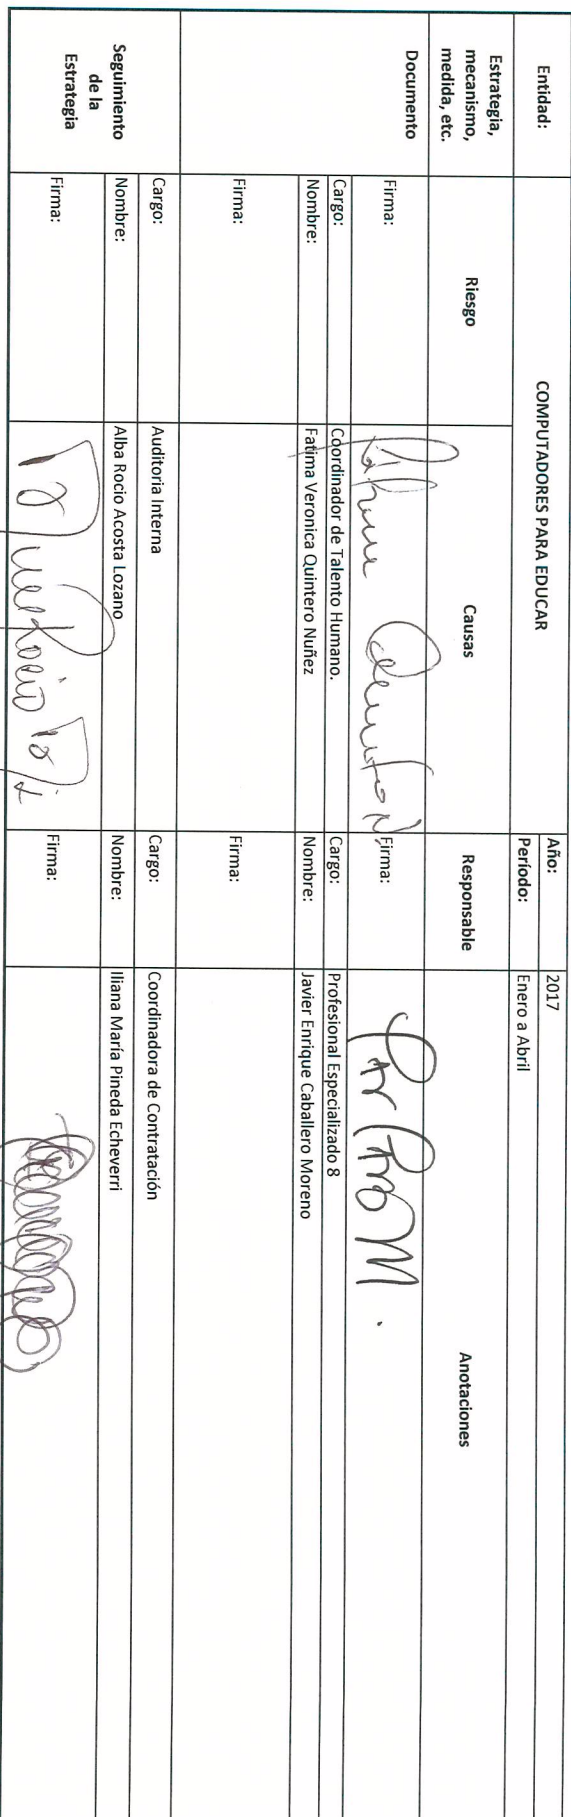 Entidad: COMPUTADORES PARA EDUCAR Año: 2017
Período: Enero a Abril
Estrategia, mecanismo, medida, etc. Riesgo Causas Responsable Anotaciones
Documento
Firma: Firma:
Cargo: Coordinador de Talento Humano. Cargo: Profesional Especializado 8
Nombre: Fatima Veronica Quintero Nuñez Nombre: Javier Enrique Caballero Moreno
Firma: Firma:
Seguimiento de la Estrategia
Cargo: Auditoria Interna Cargo: Coordinadora de Contratación
Nombre: Alba Rocio Acosta Lozano Nombre: Iliana María Pineda Echeverri
Firma: Firma: